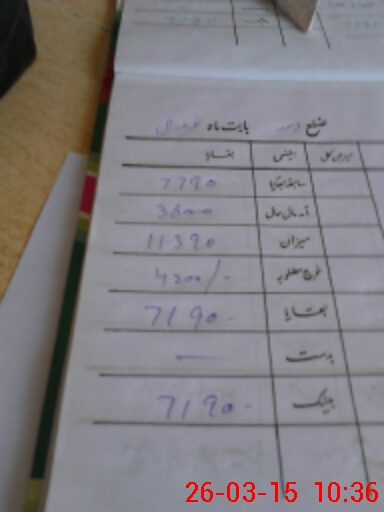 ضلع بابت ماہ
میزان کل جنس بقایا
سابقہ بقایا 7790
آمد مال حال 3600
میزان 11390
خرچ مطلوبہ 4200/-
بقایا 7190-
بدست —
بینک 7190-
26-03-15 10:36